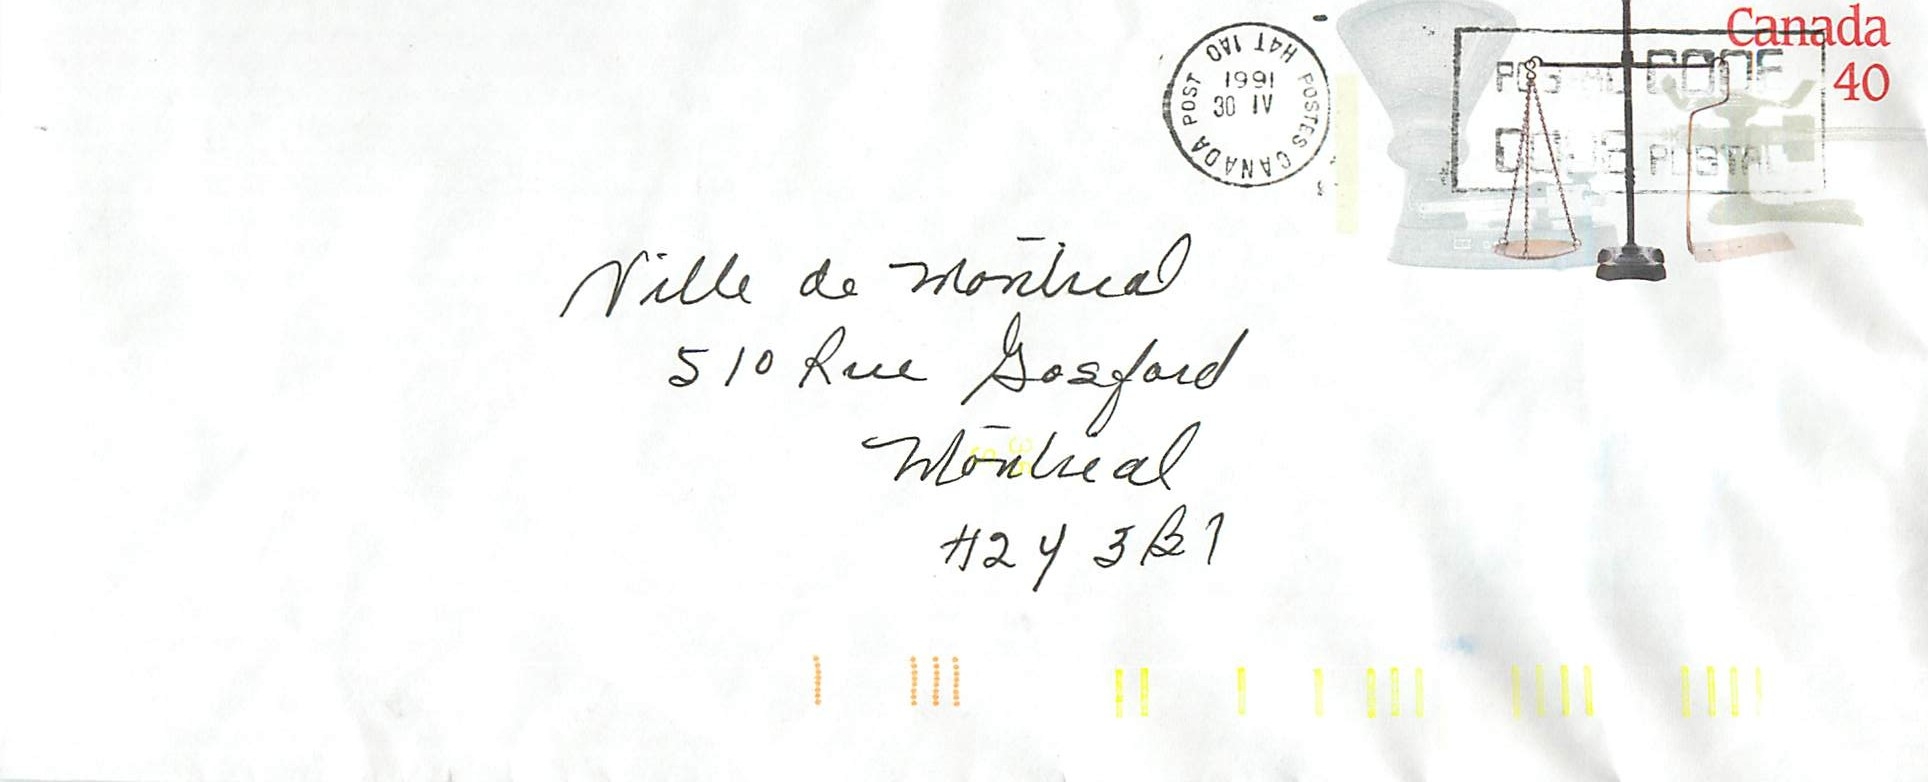 Canada
40
CANADA POST POSTES CANADA
H4T 1A0
1991
30 IV
POSTAL CODE
CODE POSTAL
Ville de Montreal
510 Rue Gosford
Montreal
H2Y 3B1